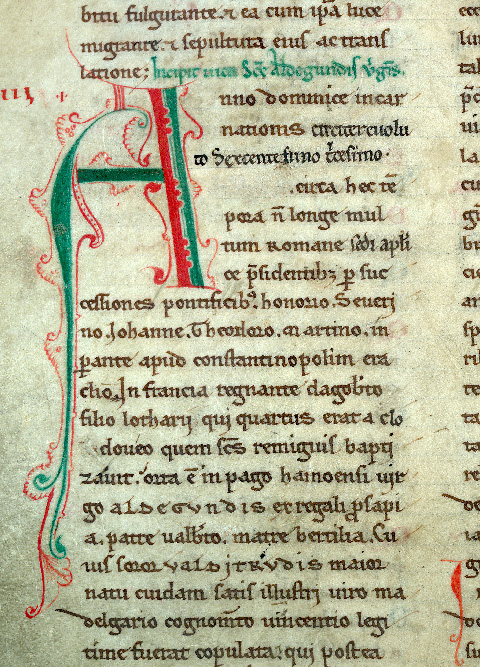 bitu fulgurante. & ea cum ip̄a luce
migrante. & sepultura eius ac trans
latione; Incipit uita Sc̄e Aldegundis v̓gis.
Anno dominice incar
nationis circiter euolu
to Sexcentesimo tͨesimo.
circa hec tē
pora n̄ longe mul
tum Romane sedi apl̄i
ce p̄sidentibꝫ ꝑ suc
cessiones pontificibꝰ. honorio. Seueri
no. Johanne. Theodoro. Martino. im
perante apud constantinopolim era
clio. In francia regnante dagob̓to
filio lotharij qui quartus erat a clo
doueo quem sc̄s remigius bapti
zauit. orta ē in pago hainoensi uir
go ALDEGVNDIS ex regali ꝓsapi
a. patre ualb̓to. matre bertilia. Cu
ius soror VALDJTRVDIS maior
natu cuidam satis illustri uiro ma
delgario cognom̄to uincentio legi
time fuerat copulata; qui postea